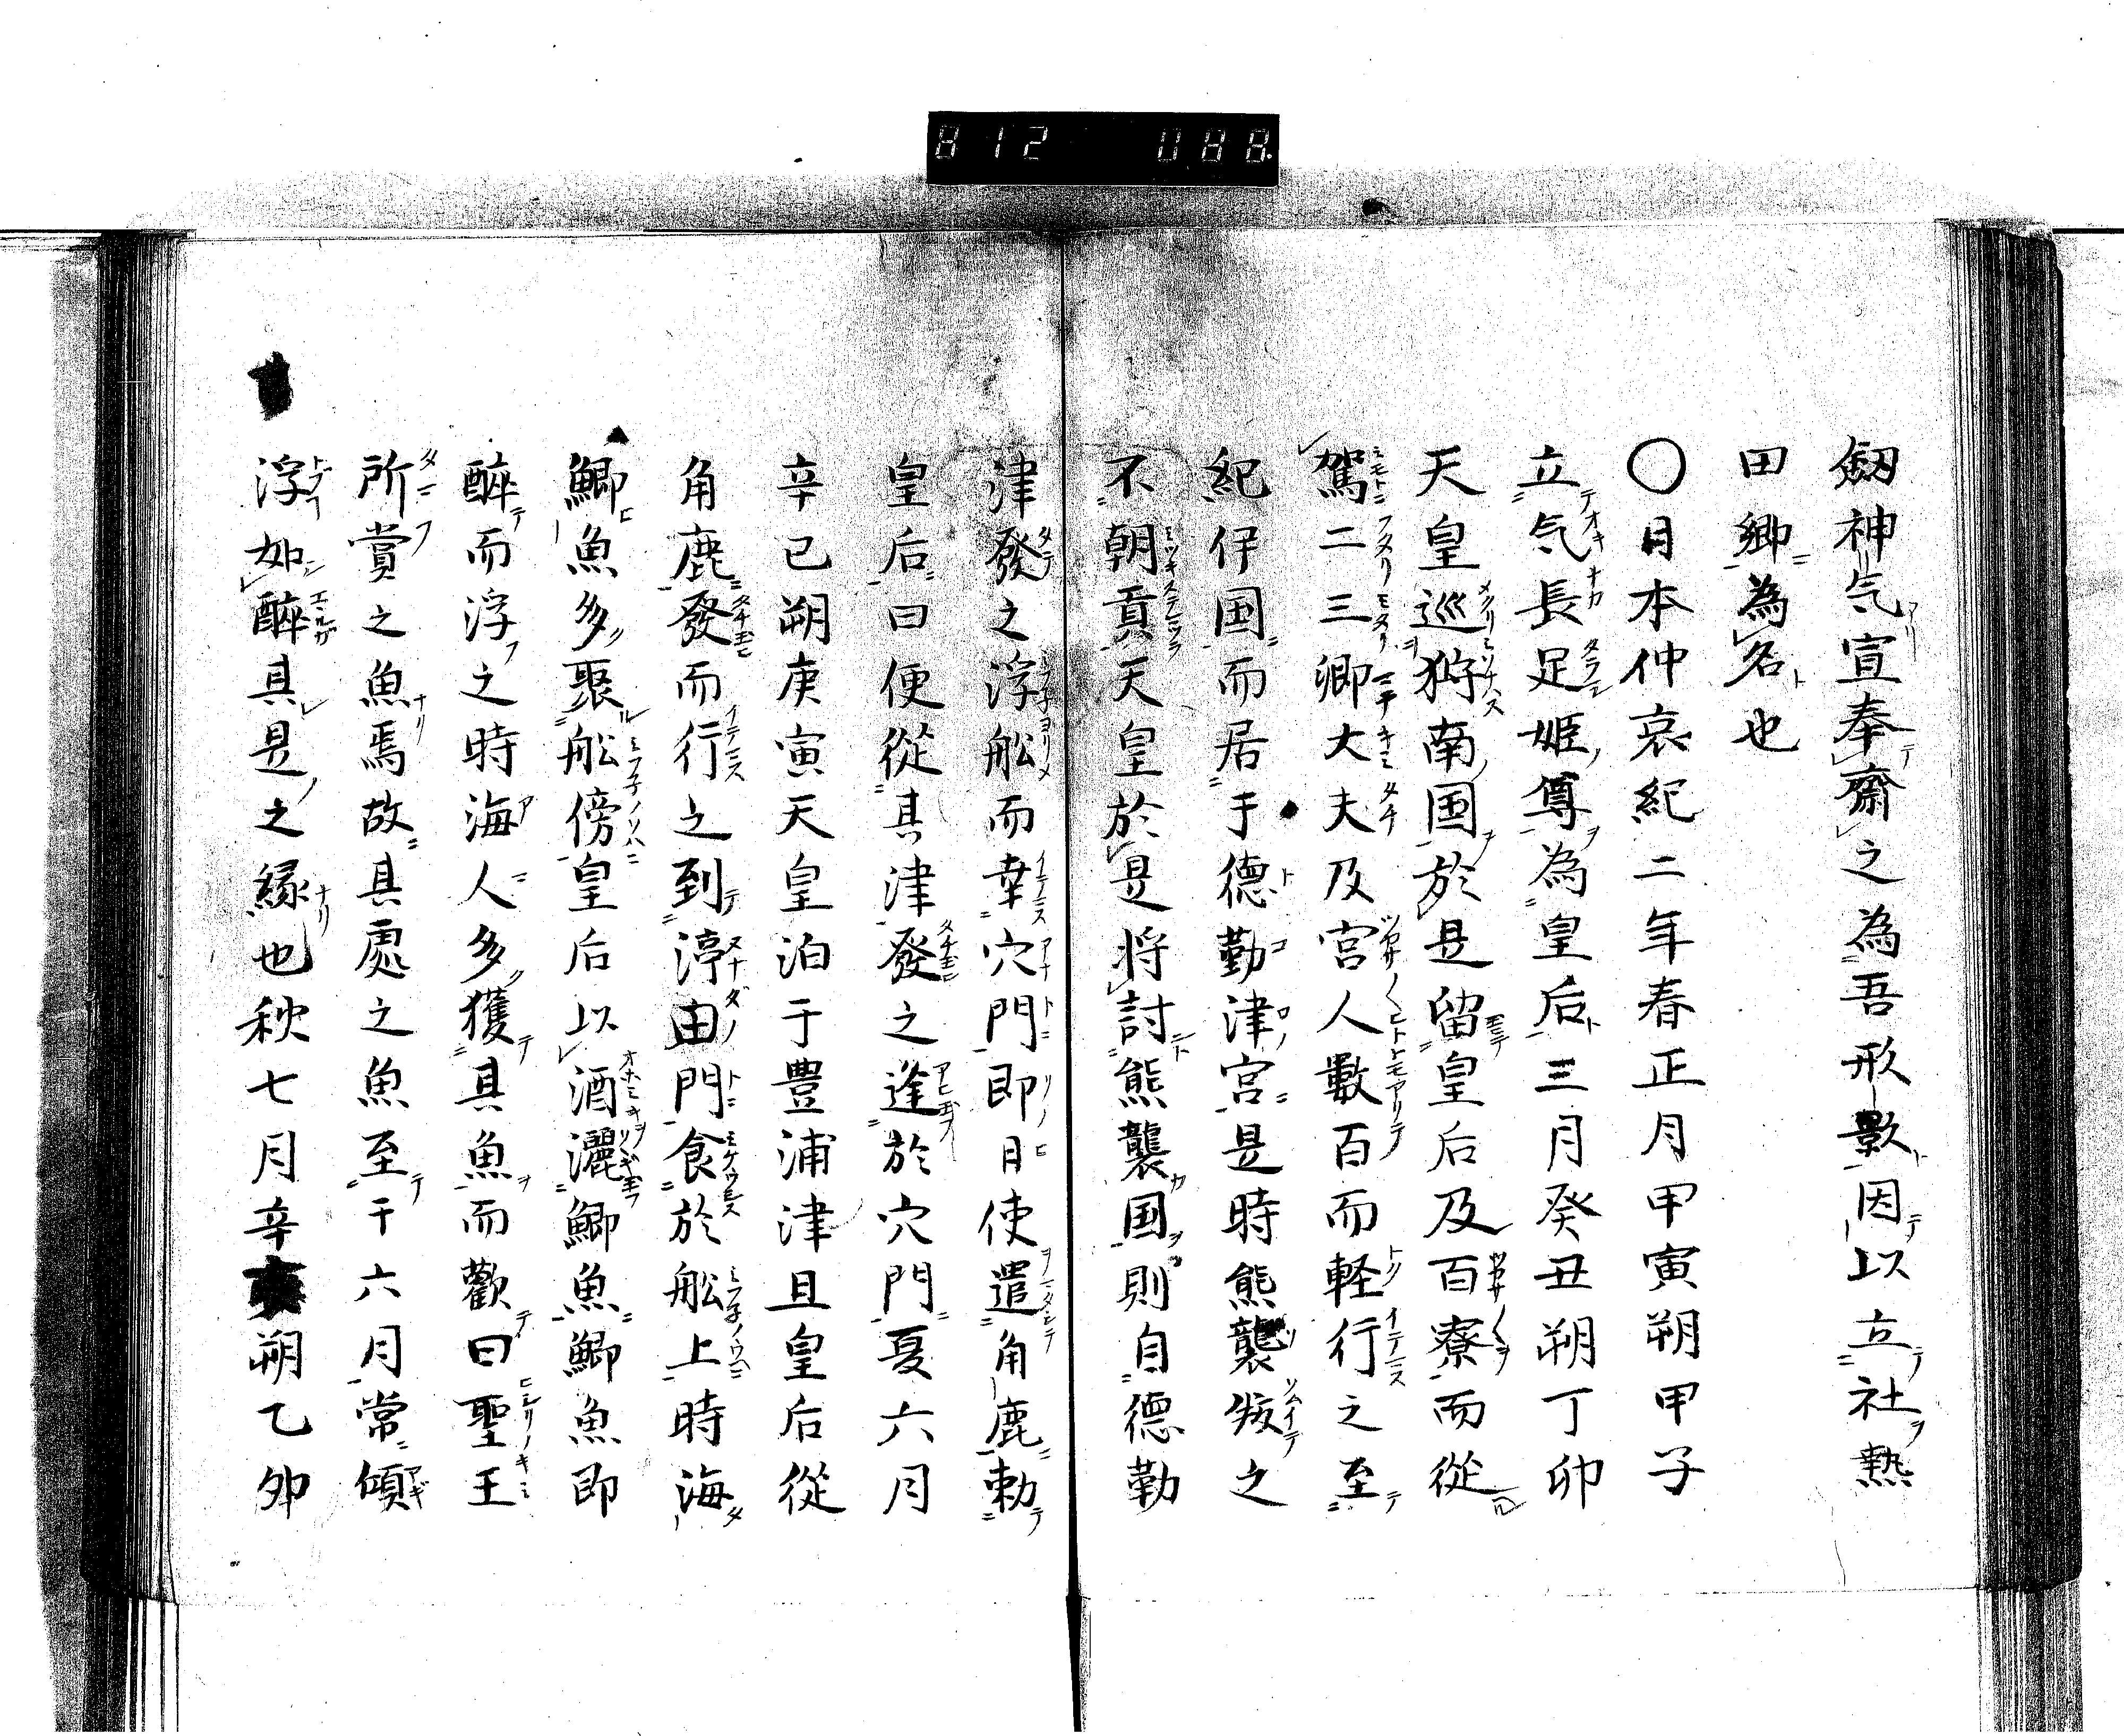 812 088
劔神气宣奉齋之為吾形影因以立社熱
田郷為名也
〇日本仲哀紀二年春正月甲寅朔甲子
立气長足姫尊為皇后三月癸丑朔丁卯
天皇巡狩南国於是留皇后及百寮而從
駕二三卿大夫及宮人數百而軽行之至
紀伊国而居于德勤津宮是時熊襲叛之
不朝貢天皇於是将討熊襲国則自德勤
津發之浮舩而幸穴門即日使遣角鹿勅
皇后曰便從其津發之逢於穴門夏六月
辛巳朔庚寅天皇泊于豊浦津且皇后從
角鹿發而行之到渟田門食於舩上時海
鯽魚多聚舩傍皇后以酒灑鯽魚鯽魚即
醉而浮之時海人多獲其魚而歡曰聖王
所賞之魚焉故其處之魚至于六月常傾
浮如醉其是之縁也秋七月辛亥朔乙卯